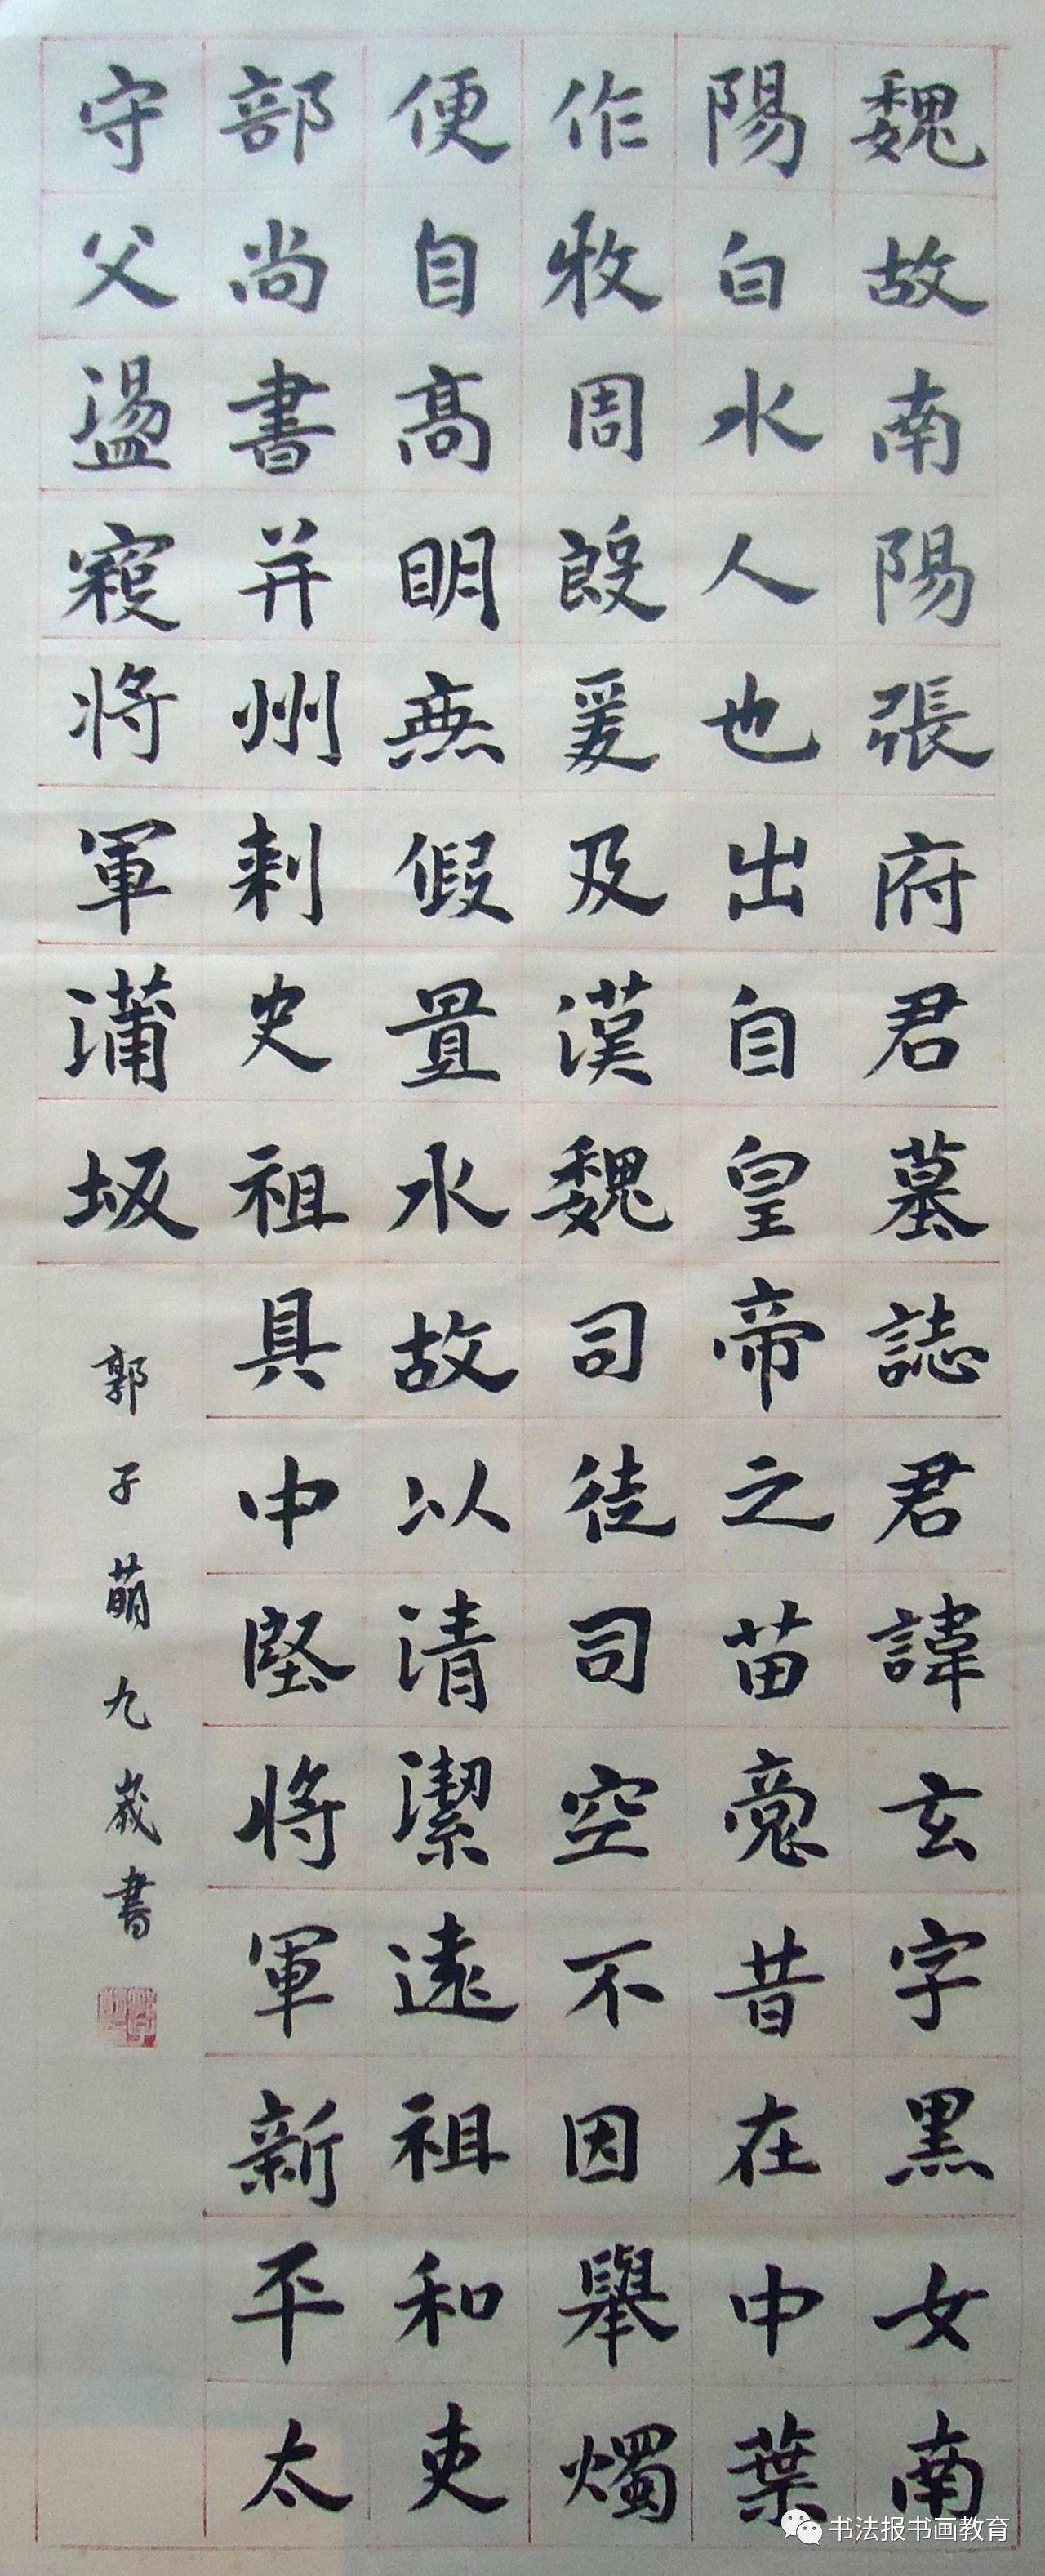 魏故南陽張府君墓誌君諱玄字黑女南
陽白水人也出自皇帝之苗裔昔在中葉
作牧周殷爰及漢魏司徒司空不因舉燭
便自高明無假置水故以清潔遠祖和吏
部尚書并州刺史祖具中堅將軍新平太
守父盪寇將軍蒲坂
郭子萌九歲書
书法报书画教育